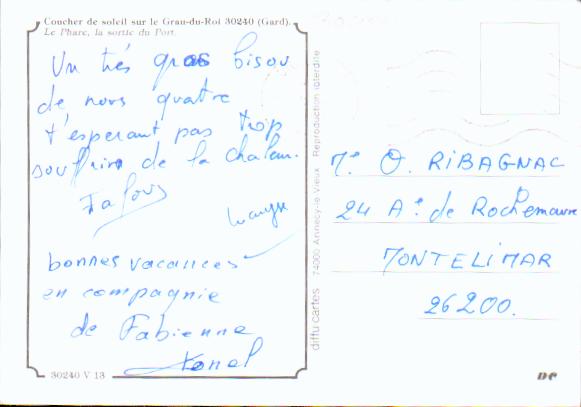 Coucher de soleil sur le Grau-du-Roi 30240 (Gard).
Le Phare, la sortie du Port.
Un très gros bisou
de nous quatre
t'esperant pas trop
souffrir de la chaleur.
bonnes vacances
en compagnie
de Fabienne
30240 V 13
diffu cartes 74000 Annecy-le-Vieux Reproduction interdite
O. RIBAGNAC
24 A. de Rochemaure
MONTELIMAR
26200.